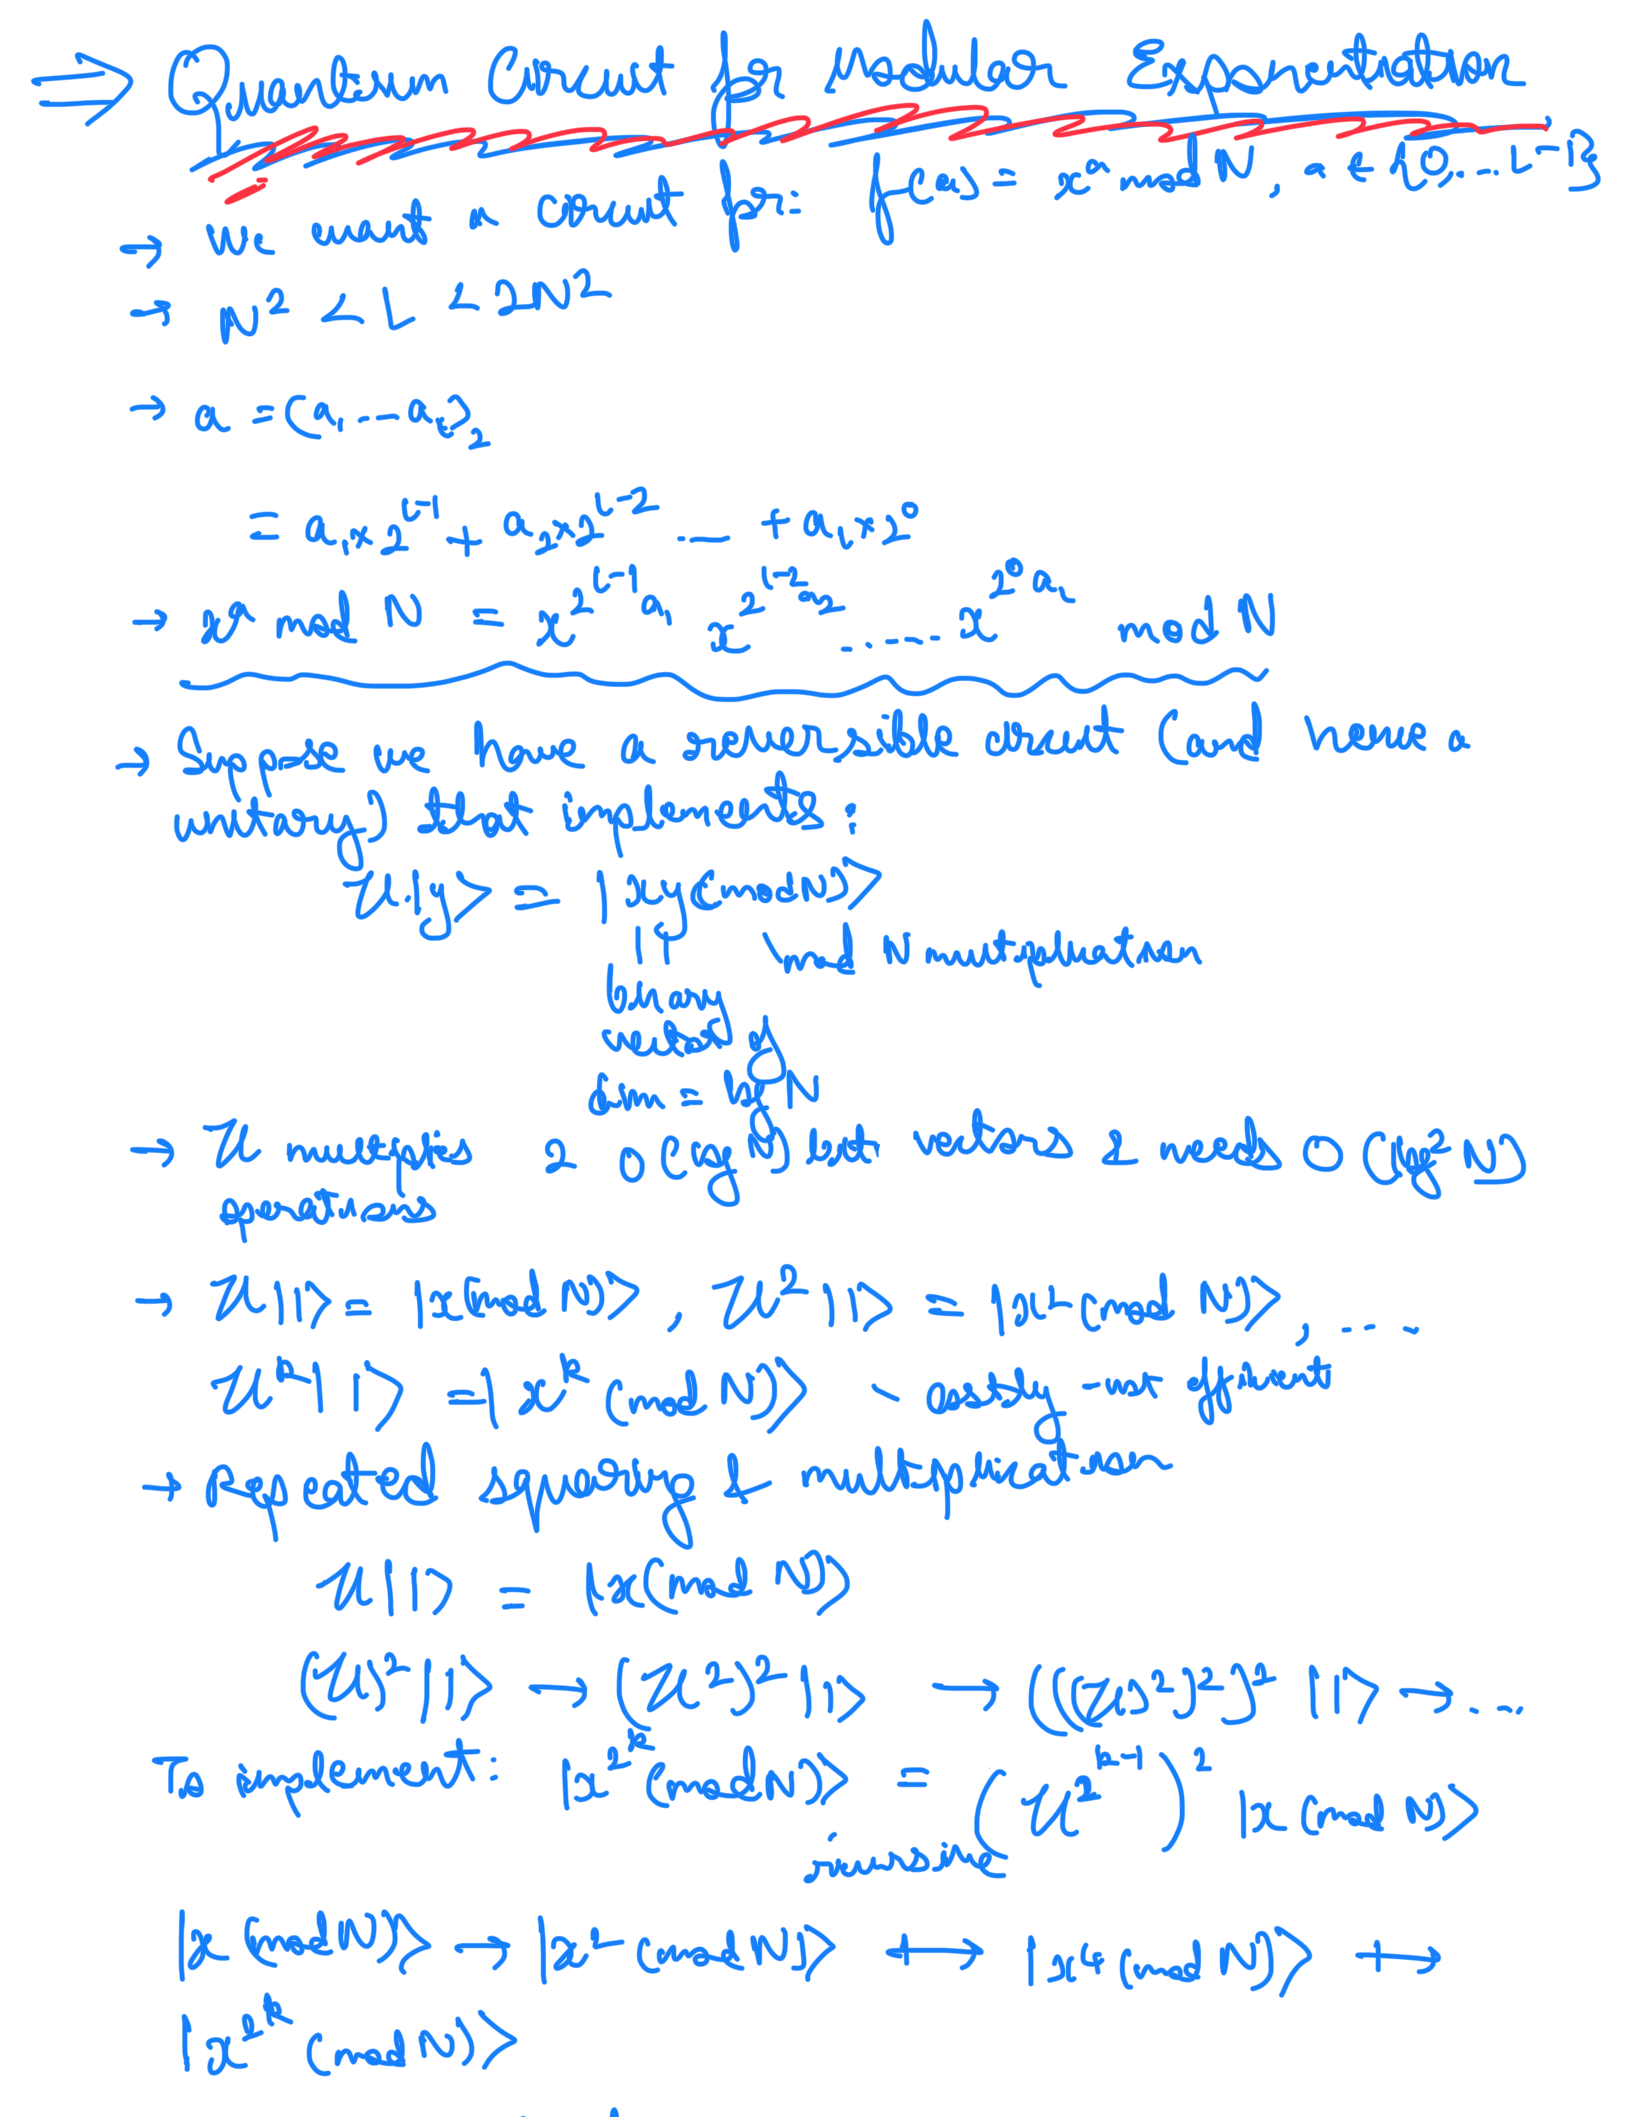 ⇒ Quantum Circuit for Modular Exponentiation
→ We want a circuit for: f(a) = x^a mod N, a ∈ {0,...L-1}
→ N² < L < 2N²
→ a = (a₁ --- a_l)₂
= a₁×2^(l-1) + a₂×2^(l-2) --- + a_l×2^0
→ x^a mod N = x^(2^(l-1) a₁) x^(2^(l-2) a₂) ...... x^(2^0 a_l) mod N
→ Suppose we have a reversible circuit (and hence a
unitary) that implements:
U|y> = |xy(mod N)>
\mod N multiplication
binary
vector of
dim = log N
→ U multiplies 2 O(log N) bit vectors & needs O(lg² N)
operations
→ U|1> = |x(mod N)>, U²|1> = |x²(mod N)>, ....
U^k|1> = |x^k (mod N)> - costly - not efficient
→ Repeated squaring & multiplication
U|1> = |x(mod N)>
(U)²|1> → (U²)²|1> → (((U)²)²)² |1> → ....
To implement: |x^(2^k) (mod N)> = (U^(2^(k-1)))² |x (mod N)>
|x (mod N)> → |x² (mod N)> ↦ |x⁴ (mod N)> ↦
|x^(2^k) (mod N)>